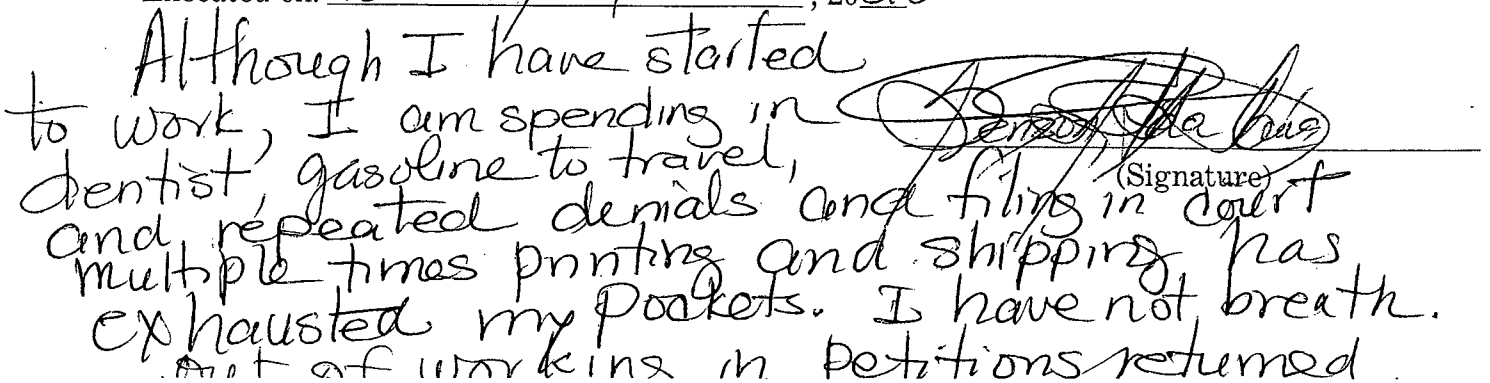 Although I have started
to work, I am spending in
dentist, gasoline to travel,
(Signature)
and repeated denials and filing in court
multiple times printing and shipping has
exhausted my pockets. I have not breath.
out of working in petitions returned